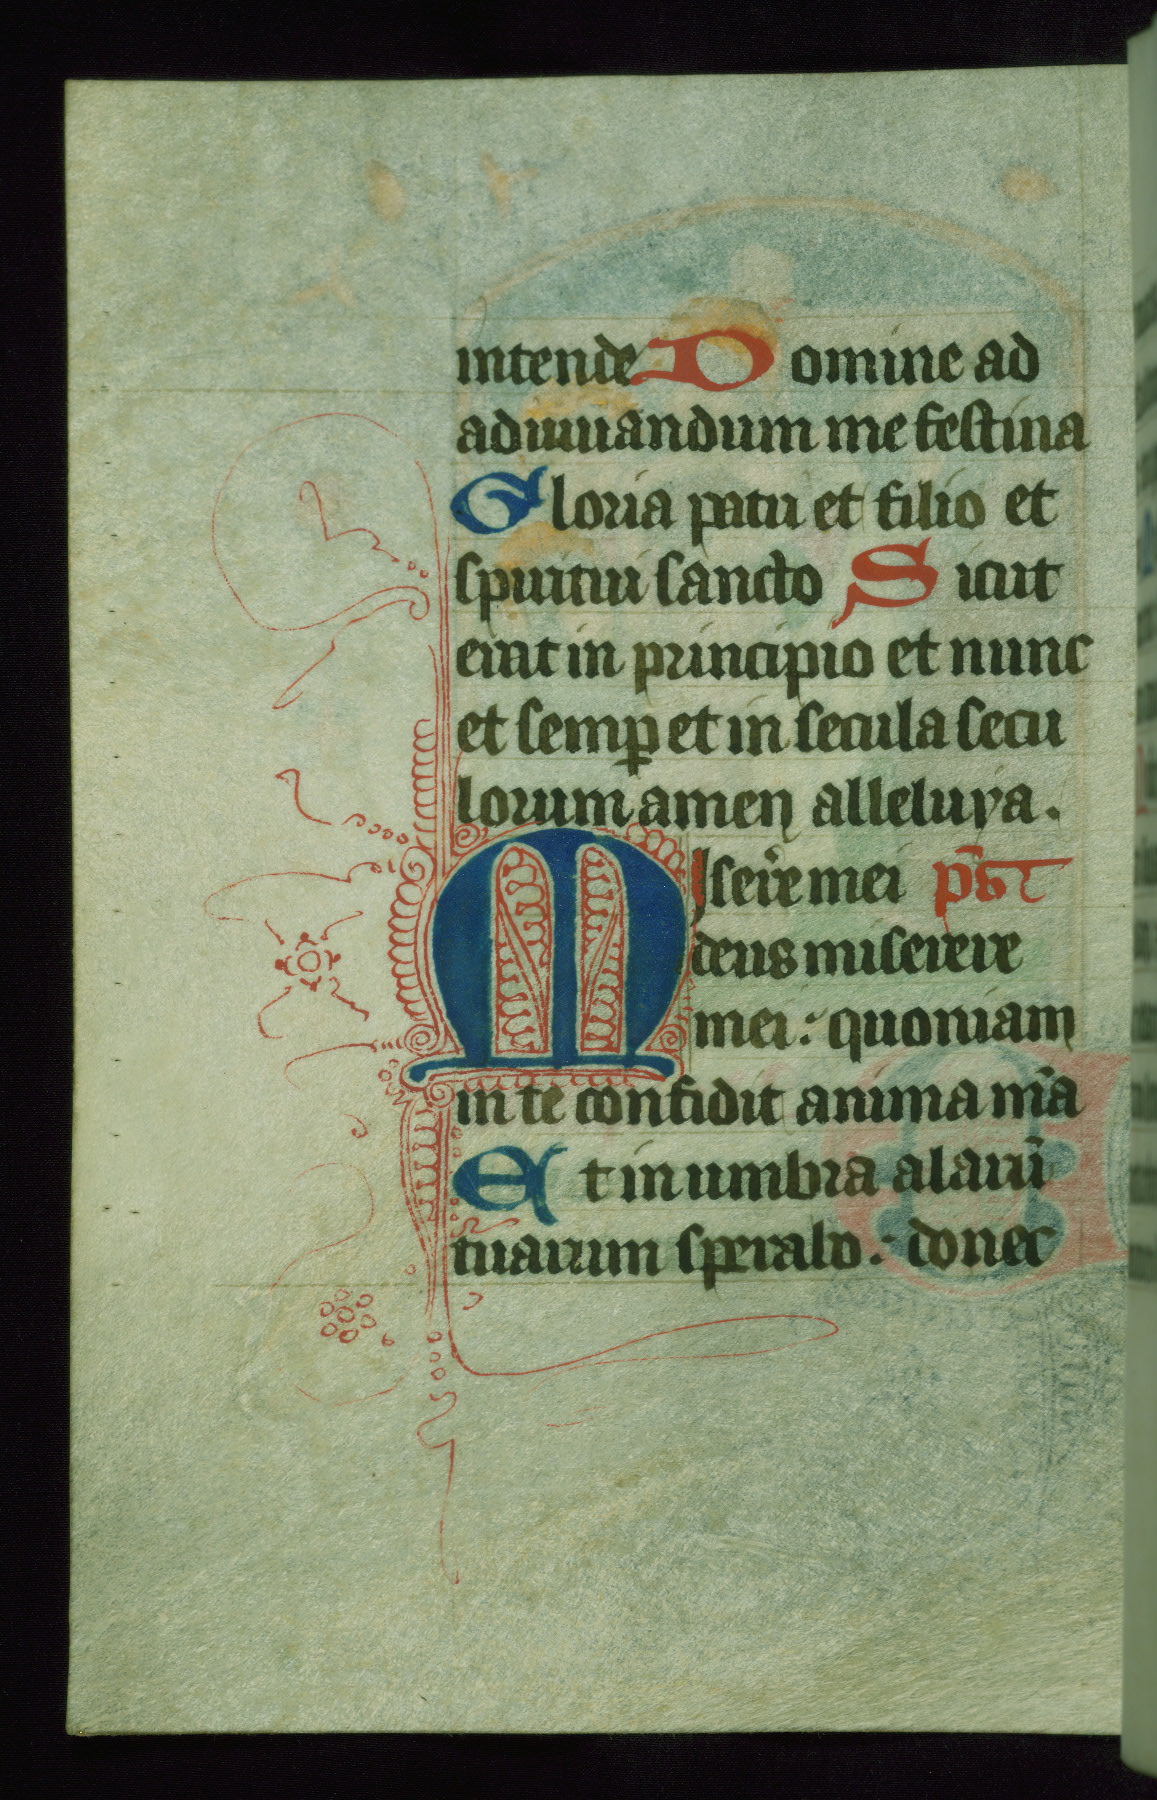 intende Domine ad
adiuuandum me festina
Gloria patri et filio et
spiritui sancto Sicut
erat in principio et nunc
et semp et in secula secu
lorum amen alleluya.
Misere mei ps̄
deus miserere
mei: quoniam
in te confidit anima m̄a
Et in umbra alarū
tuarum sperabo: donec